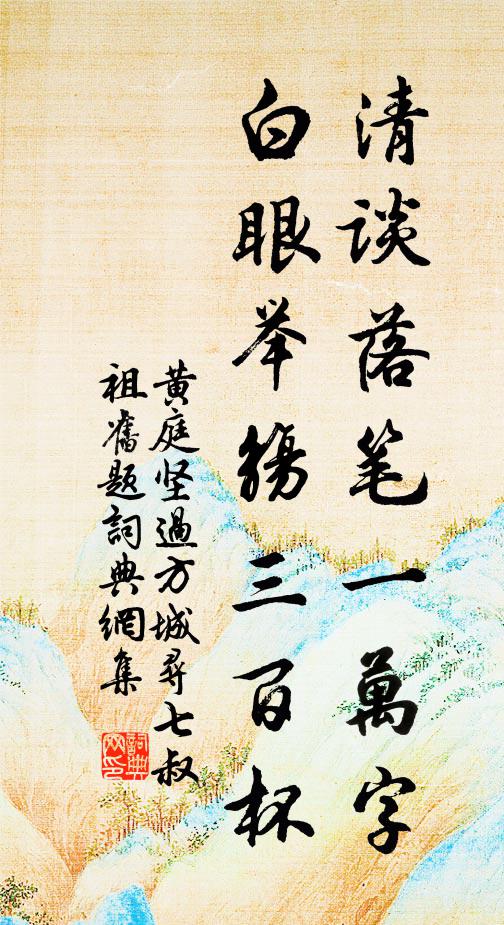 清谈落笔一萬字
白眼举觴三百杯
黄庭坚過方城尋七叔
祖舊題詞典網集
詞典
网印